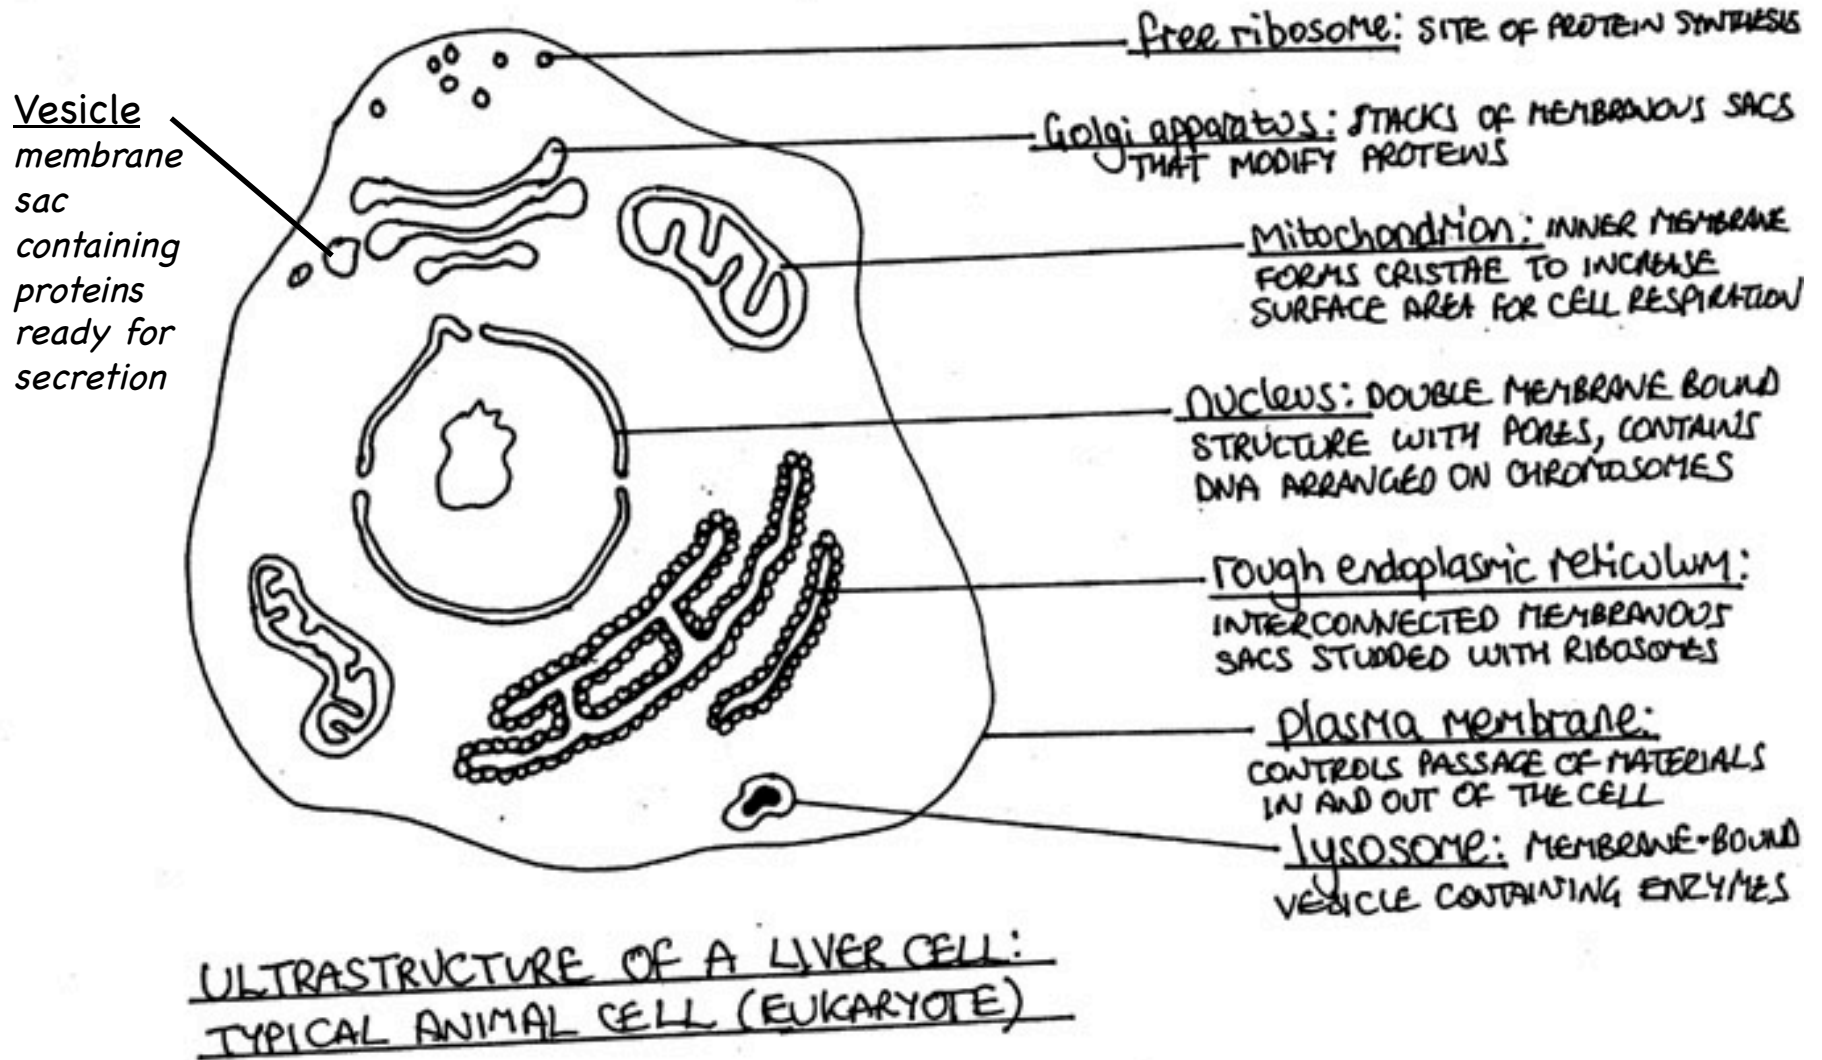 Vesicle
membrane
sac
containing
proteins
ready for
secretion
free ribosome: SITE OF PROTEIN SYNTHESIS
Golgi apparatus: STACKS OF MEMBRANOUS SACS
THAT MODIFY PROTEINS
Mitochondrion: INNER MEMBRANE
FORMS CRISTAE TO INCREASE
SURFACE AREA FOR CELL RESPIRATION
nucleus: DOUBLE MEMBRANE BOUND
STRUCTURE WITH PORES, CONTAINS
DNA ARRANGED ON CHROMOSOMES
rough endoplasmic reticulum:
INTERCONNECTED MEMBRANOUS
SACS STUDDED WITH RIBOSOMES
plasma membrane:
CONTROLS PASSAGE OF MATERIALS
IN AND OUT OF THE CELL
lysosome: MEMBRANE-BOUND
VESICLE CONTAINING ENZYMES
ULTRASTRUCTURE OF A LIVER CELL:
TYPICAL ANIMAL CELL (EUKARYOTE)